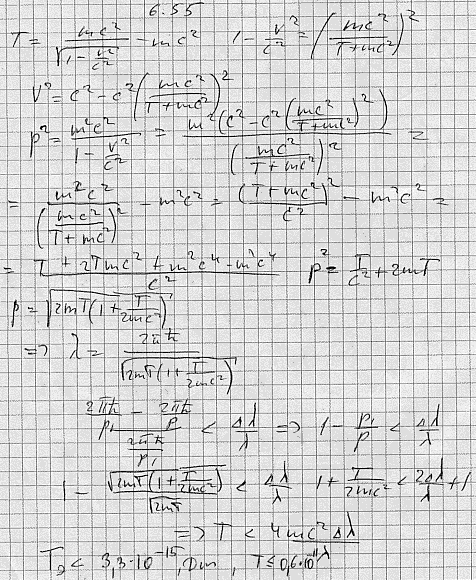 6.55
T = mc²/√(1 - v²/c²) - mc²   1 - v²/c² = (mc²/(T+mc²))²
V² = c² - c²(mc²/(T+mc²))²
p² = m²c²/(1 - v²/c²) = m²(c² - c²(mc²/(T+mc²))²)/(mc²/(T+mc²))² =
= m²c²/(mc²/(T+mc²))² - m²c² = (T+mc²)²/c² - m²c² =
= (T + 2Tmc² + m²c⁴ - m²c⁴)/c²   p² = T/c² + 2mT
p = √(2mT(1 + T/2mc²))
=> λ = 2πħ/√(2mT(1 + T/2mc²))
(2πħ/p₁ - 2πħ/p)/(2πħ/p₁) < Δλ/λ => 1 - p₁/p < Δλ/λ
1 - √(2mT(1 + T/2mc²))/√(2mT) < Δλ/λ   1 + T/2mc² < 2Δλ/λ + 1
=> T < 4mc²Δλ/λ
< 3,3·10⁻¹⁵ Дж, T ≤ 0,6·10